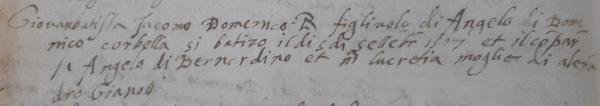 Giovanbatista Jacomo Domenico R figliuolo di Angelo di Dome
nico corbella si batizo il di di settebr et il cōpar
fu Angelo di Bernardino et lucretia moglie di alesā
dro Gianoti